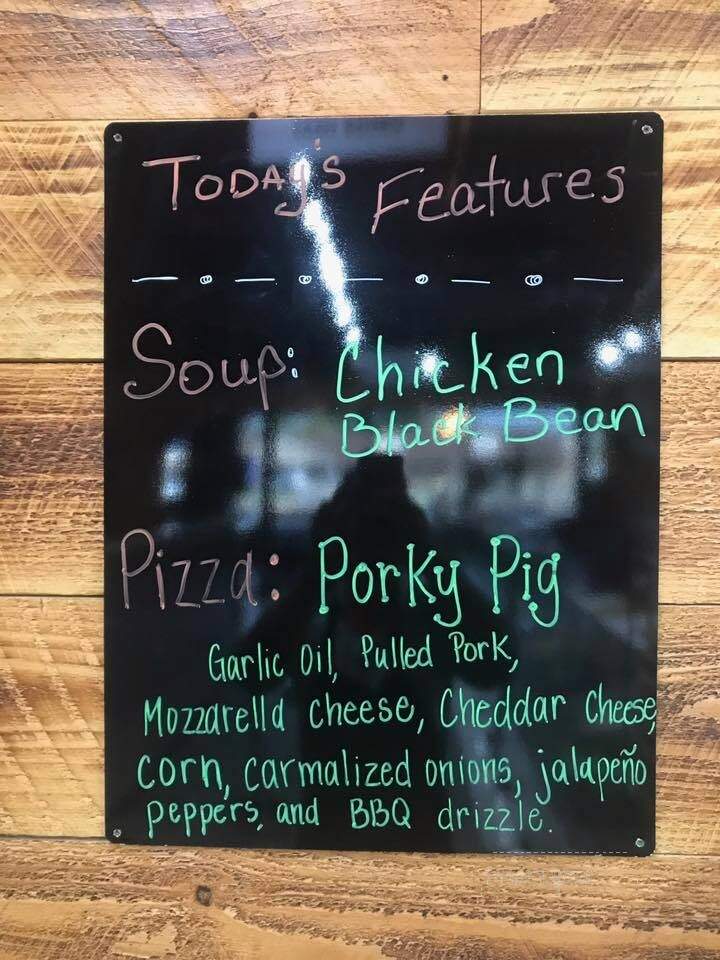 Today's Features
Soup: Chicken
Black Bean
Pizza: Porky Pig
Garlic Oil, Pulled Pork,
Mozzarella cheese, Cheddar Cheese,
corn, carmalized onions, jalapeño
peppers, and BBQ drizzle.